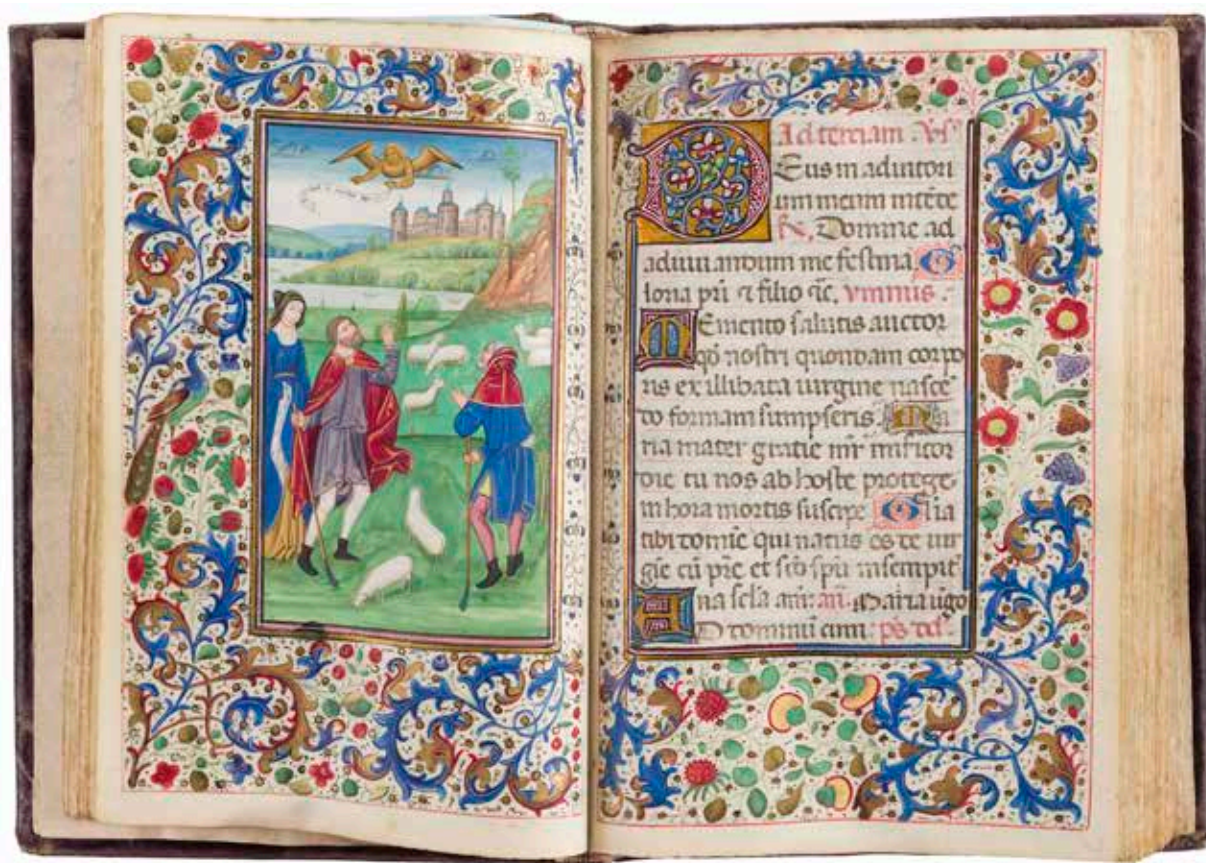 Ad terciam. Vs̃
Deus in adiutori
um meum intẽde
R̃. Domine ad
adiuuandum me festina. G
loria pr̃i ⁊ filio ⁊c̃. ymnus.
Memento salutis auctor
qđ nostri quondam corpo
ris ex illibata uirgine nascẽ
do formam sumpseris. Ma
ria mater gratie mr̃ misicor
die tu nos ab hoste protege
in hora mortis suscipe Glia
tibi domĩe qui natus es de uir
gĩe cũ pr̃e et sc̃o spũ in sempit
na sc̃la am̃: añ. Maria uĩgo
AD dominũ cum: ps̃